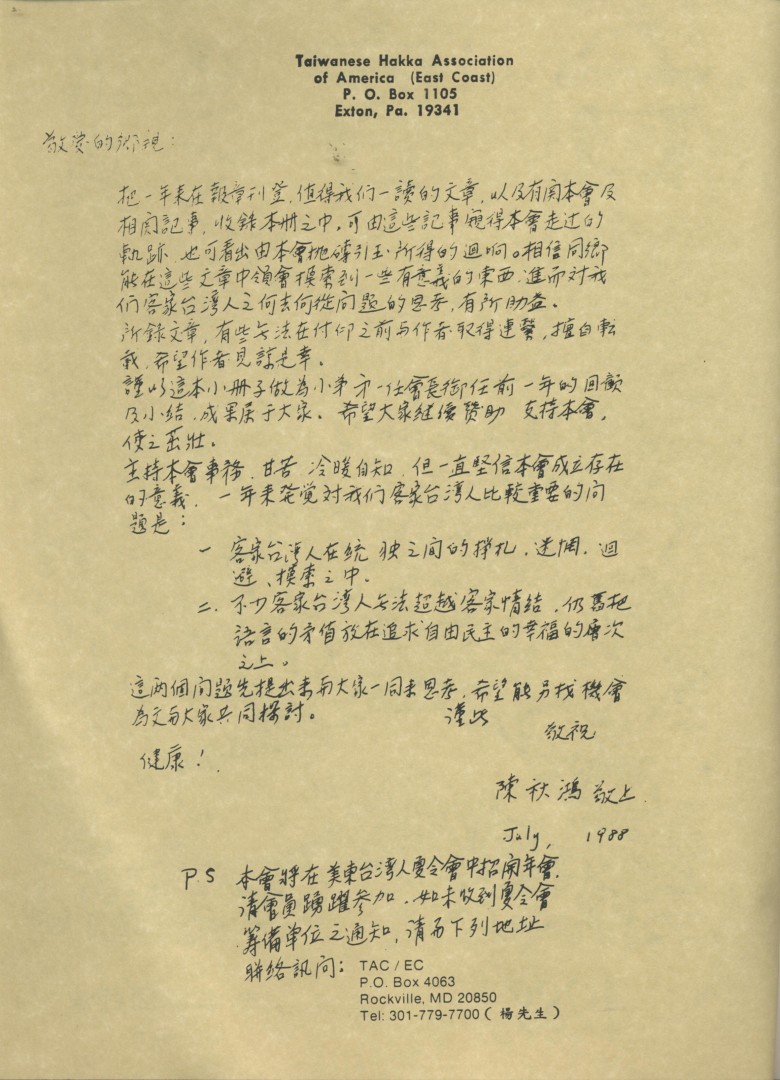 Taiwanese Hakka Association
of America (East Coast)
P. O. Box 1105
Exton, Pa. 19341
敬愛的鄉親：
把一年來在報章刊登，值得我们一讀的文章，以及有関本會及
相関記事，收錄本册之中。可由這些記事窺得本會走过的
軌跡，也可看出由本會抛磚引玉所得的迴响。相信同鄉
能在這些文章中領會摸索到一些有意義的東西，進而对我
们客家台湾人之何去何從问题的思考，有所助益。
所錄文章，有些无法在付印之前与作者取得連繫，擅自転
載，希望作者見諒是幸。
謹以這本小册子做為小弟才一任會長卸任前一年的回顧
及小结，成果属于大家。希望大家継续赞助 支持本會，
使之茁壯。
主持本會事務，甘苦 冷暖自知，但一直堅信本會成立存在
的意義，一年来発覚对我们客家台湾人比較重要的问
題是：
一 客家台湾人在統 独之间的挣扎，迷惘，迴
避、摸索之中。
二. 不少客家台湾人无法超越客家情结，仍旧把
語言的矛盾放在追求自由民主的幸福的層次
之上。
這两個问题先提出来与大家一同来思考，希望能另找機會
為文与大家共同探討。 谨此
敬祝
健康！
陳秋鴻 敬上
July, 1988
PS 本會將在美東台湾人夏令會中招開年會，
请會員踴躍參加，如未收到夏令會
筹備单位之通知，请与下列地址
聯絡訊问： TAC / EC
P.O. Box 4063
Rockville, MD 20850
Tel: 301-779-7700 ( 楊先生 )